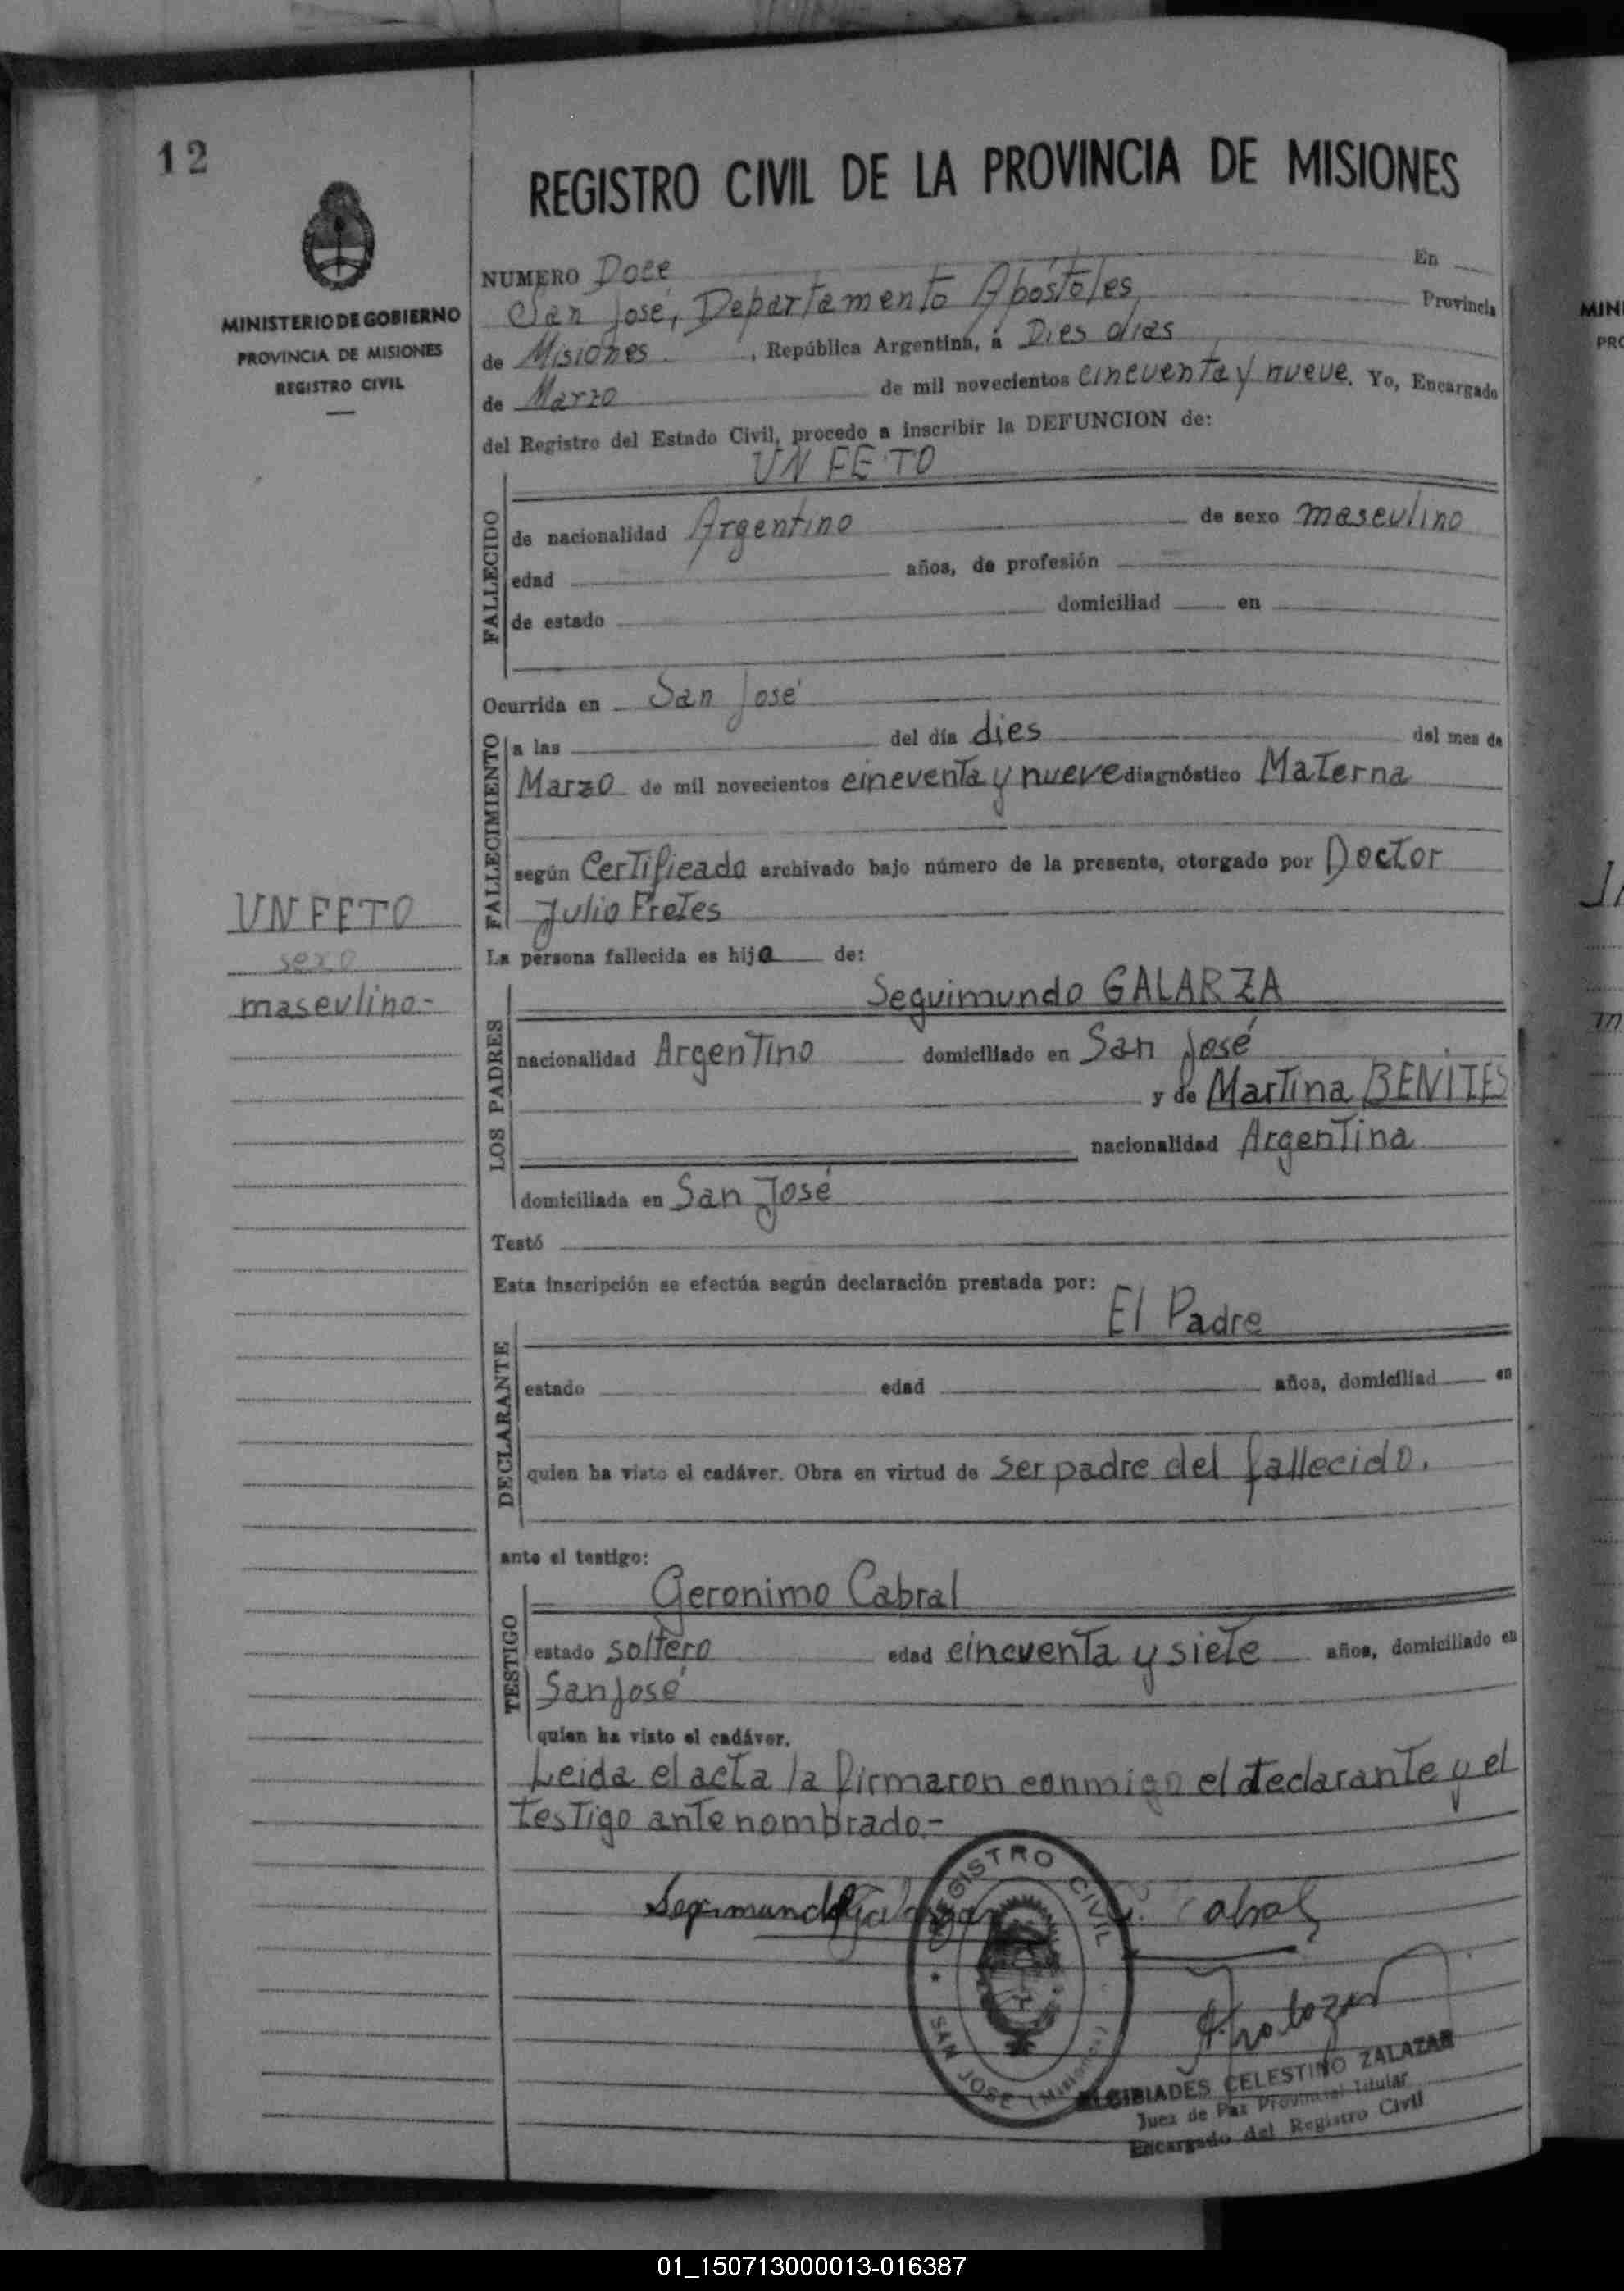 12
REGISTRO CIVIL DE LA PROVINCIA DE MISIONES
MINISTERIO DE GOBIERNO
PROVINCIA DE MISIONES
REGISTRO CIVIL
NUMERO Doce En
San José, Departamento Apóstoles Provincia
de Misiones , República Argentina, a Dies dias
de Marzo de mil novecientos cincuenta y nueve. Yo, Encargado
del Registro del Estado Civil, procedo a inscribir la DEFUNCION de:
UN FETO
FALLECIDO
de nacionalidad Argentino de sexo masculino
edad años, de profesión
de estado domiciliad en
Ocurrida en San José
FALLECIMIENTO
a las del día dies del mes de
Marzo de mil novecientos cincuenta y nueve diagnóstico Materna
según Certificado archivado bajo número de la presente, otorgado por Doctor
Julio Fretes
UN FETO
sexo
masculino-
La persona fallecida es hijo de:
LOS PADRES
Seguimundo GALARZA
nacionalidad Argentino domiciliado en San José
y de Martina BENITES
nacionalidad Argentina
domiciliada en San José
Testó
Esta inscripción se efectúa según declaración prestada por:
DECLARANTE
El Padre
estado edad años, domiciliad en
quien ha visto el cadáver. Obra en virtud de ser padre del fallecido.
ante el testigo:
TESTIGO
Geronimo Cabral
estado soltero edad cincuenta y siete años, domiciliado en
San José
quien ha visto el cadáver.
Leida el acta la firmaron conmigo el declarante y el
testigo ante nombrado-
REGISTRO CIVIL
SAN JOSE (Misiones)
G. Cabral
ALCIBIADES CELESTINO ZALAZAR
Juez de Paz Provincial Titular
Encargado del Registro Civil
MIN
PRO
01_150713000013-016387